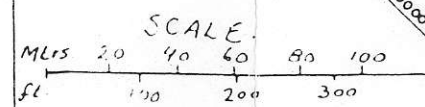 SCALE.
Mtrs 20 40 60 80 100
ft. 100 200 300